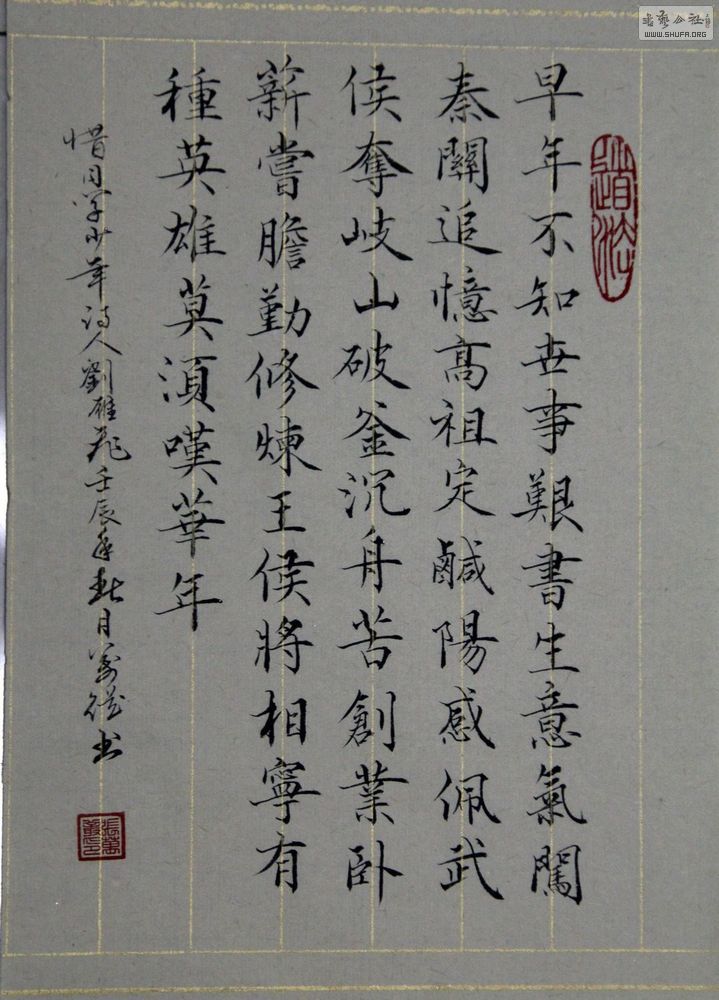 早年不知世事艱書生意氣闖
秦關追憶高祖定鹹陽感佩武
侯奪岐山破釜沉舟苦創業卧
薪嘗膽勤修煉王侯將相寧有
種英雄莫須嘆華年
惜同学少年诗人劉雁飛壬辰年秋月萬從书
書藝公社
WWW.SHUFA.ORG